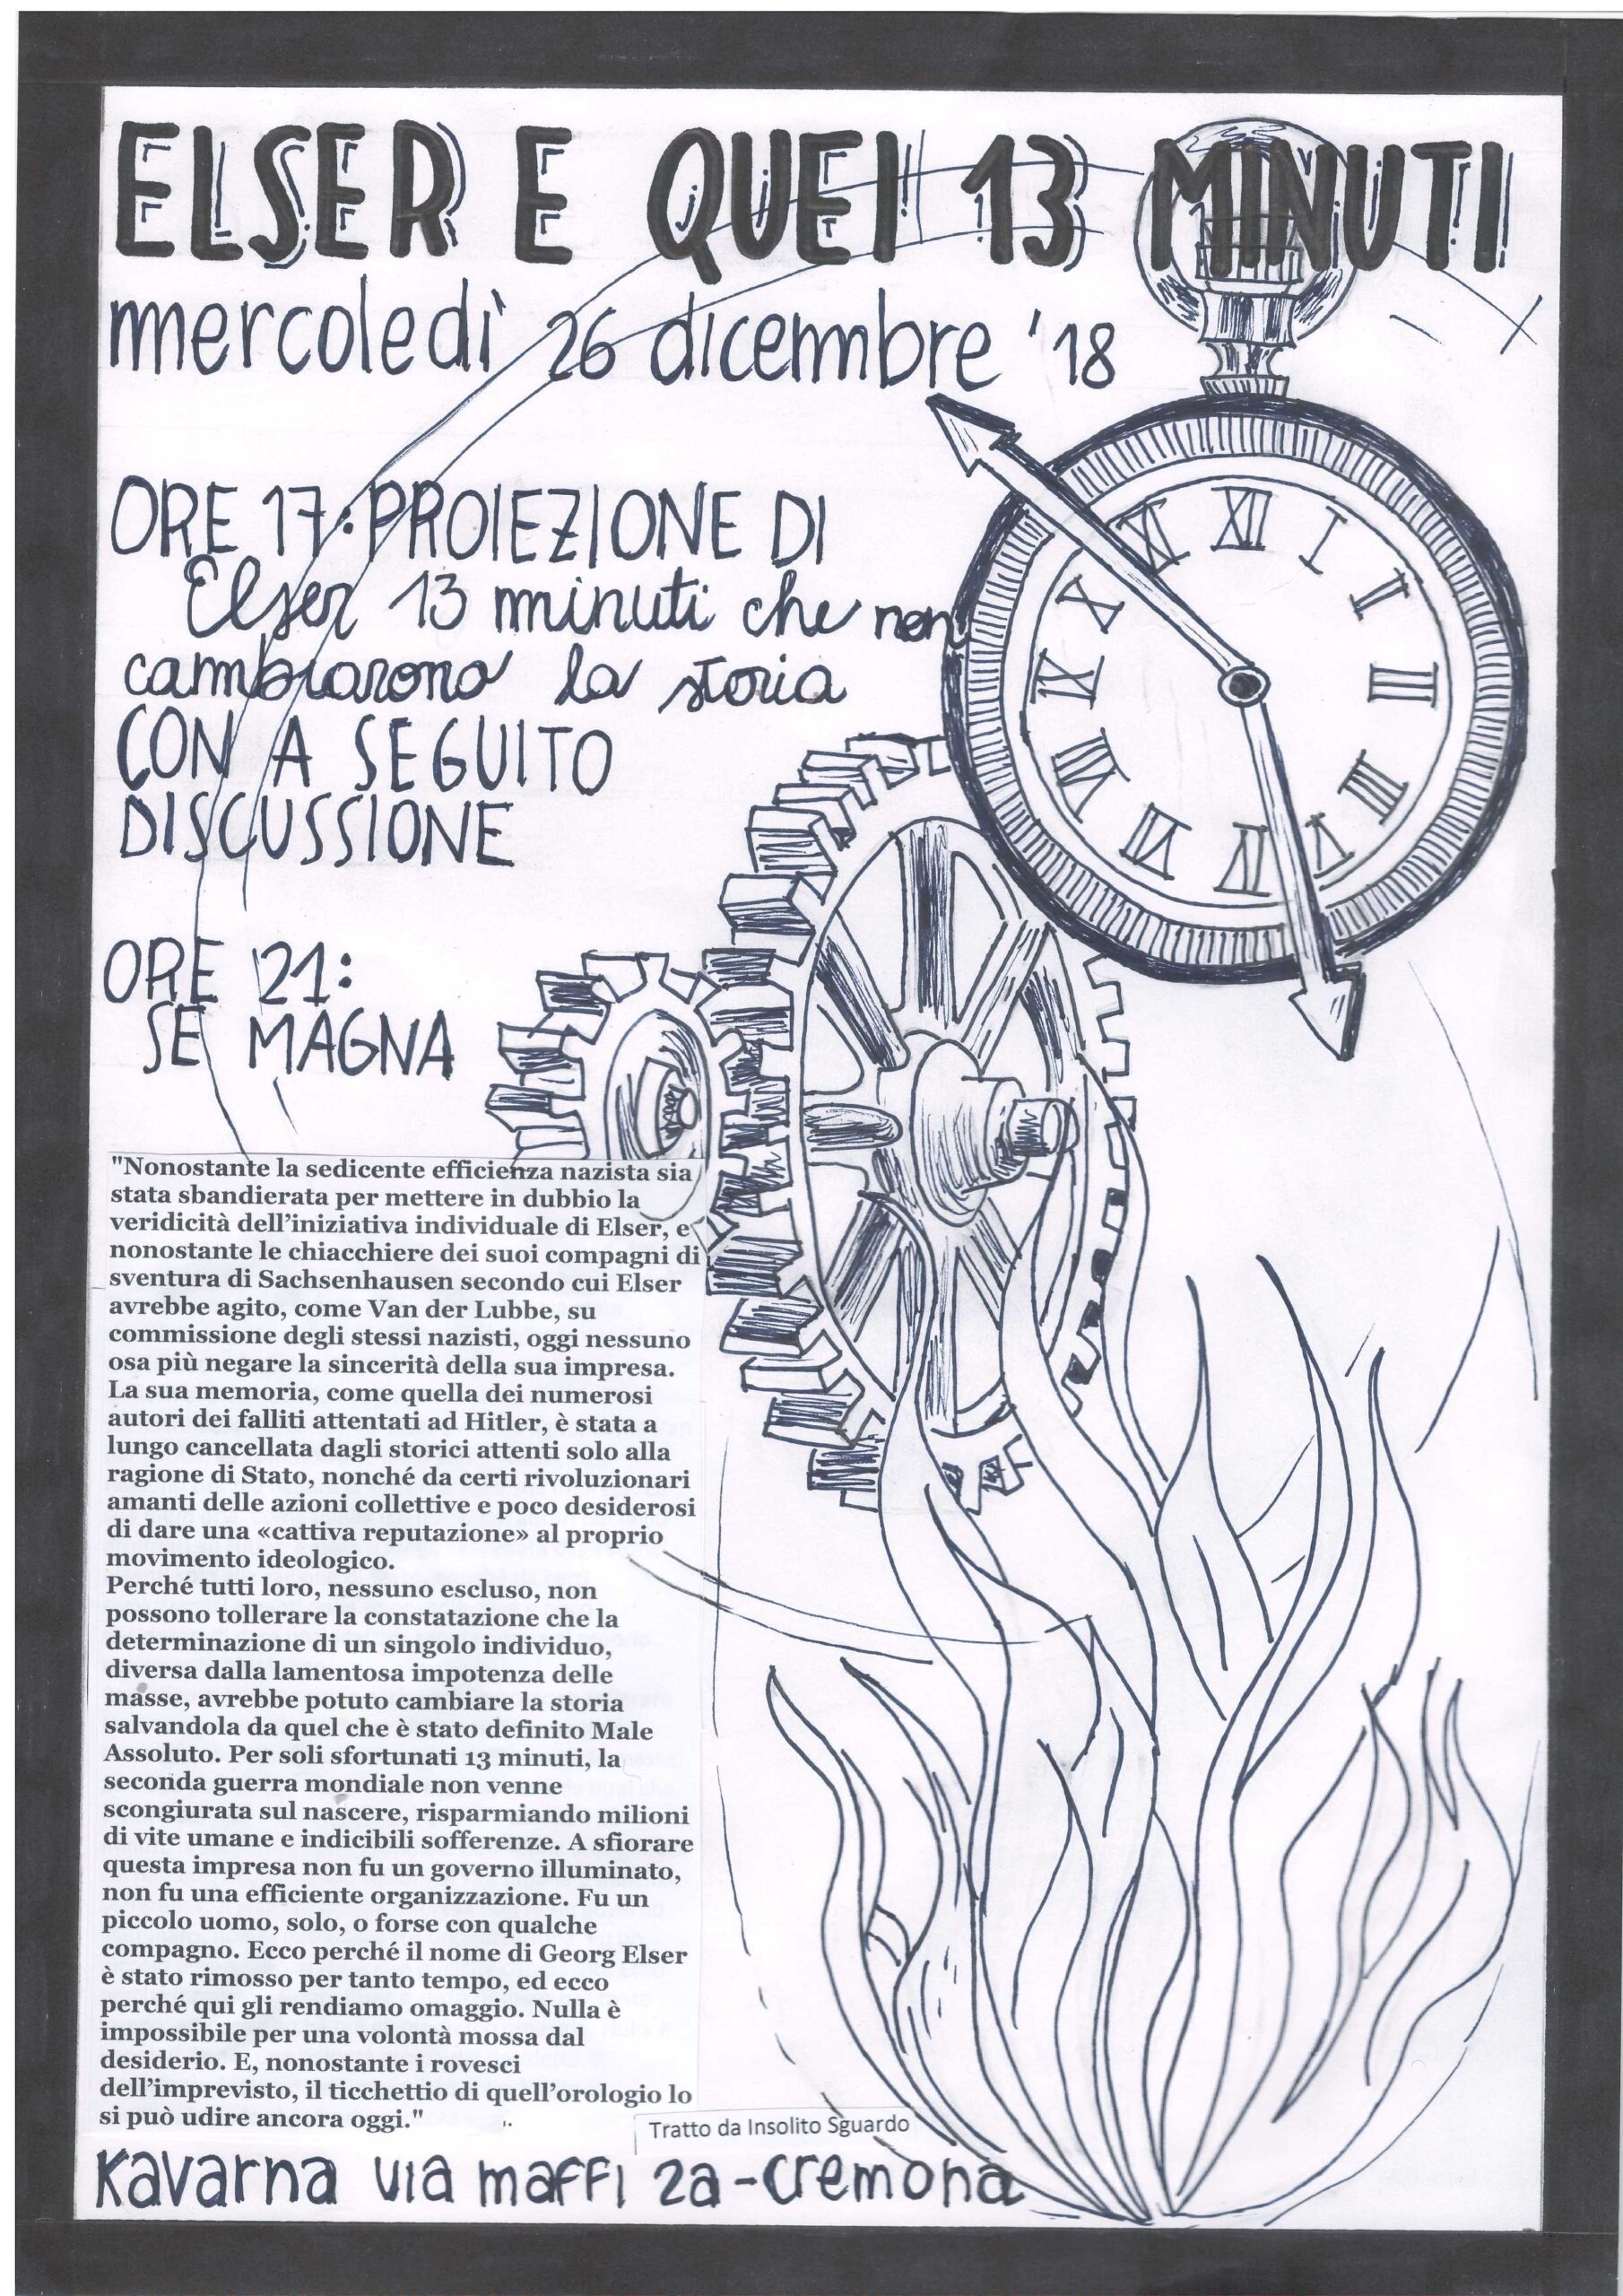 ELSER E QUEI 13 MINUTI
mercoledì 26 dicembre '18
ORE 17: PROIEZIONE DI
Elser 13 minuti che non
cambiarono la storia
CON A SEGUITO
DISCUSSIONE
ORE 21:
SE MAGNA
XII
I
II
III
IIII
V
VI
VII
VIII
IX
X
XI
"Nonostante la sedicente efficienza nazista sia
stata sbandierata per mettere in dubbio la
veridicità dell'iniziativa individuale di Elser, e
nonostante le chiacchiere dei suoi compagni di
sventura di Sachsenhausen secondo cui Elser
avrebbe agito, come Van der Lubbe, su
commissione degli stessi nazisti, oggi nessuno
osa più negare la sincerità della sua impresa.
La sua memoria, come quella dei numerosi
autori dei falliti attentati ad Hitler, è stata a
lungo cancellata dagli storici attenti solo alla
ragione di Stato, nonché da certi rivoluzionari
amanti delle azioni collettive e poco desiderosi
di dare una «cattiva reputazione» al proprio
movimento ideologico.
Perché tutti loro, nessuno escluso, non
possono tollerare la constatazione che la
determinazione di un singolo individuo,
diversa dalla lamentosa impotenza delle
masse, avrebbe potuto cambiare la storia
salvandola da quel che è stato definito Male
Assoluto. Per soli sfortunati 13 minuti, la
seconda guerra mondiale non venne
scongiurata sul nascere, risparmiando milioni
di vite umane e indicibili sofferenze. A sfiorare
questa impresa non fu un governo illuminato,
non fu una efficiente organizzazione. Fu un
piccolo uomo, solo, o forse con qualche
compagno. Ecco perché il nome di Georg Elser
è stato rimosso per tanto tempo, ed ecco
perché qui gli rendiamo omaggio. Nulla è
impossibile per una volontà mossa dal
desiderio. E, nonostante i rovesci
dell'imprevisto, il ticchettio di quell'orologio lo
si può udire ancora oggi."
Tratto da Insolito Sguardo
Kavarna via maffi 2a - Cremona